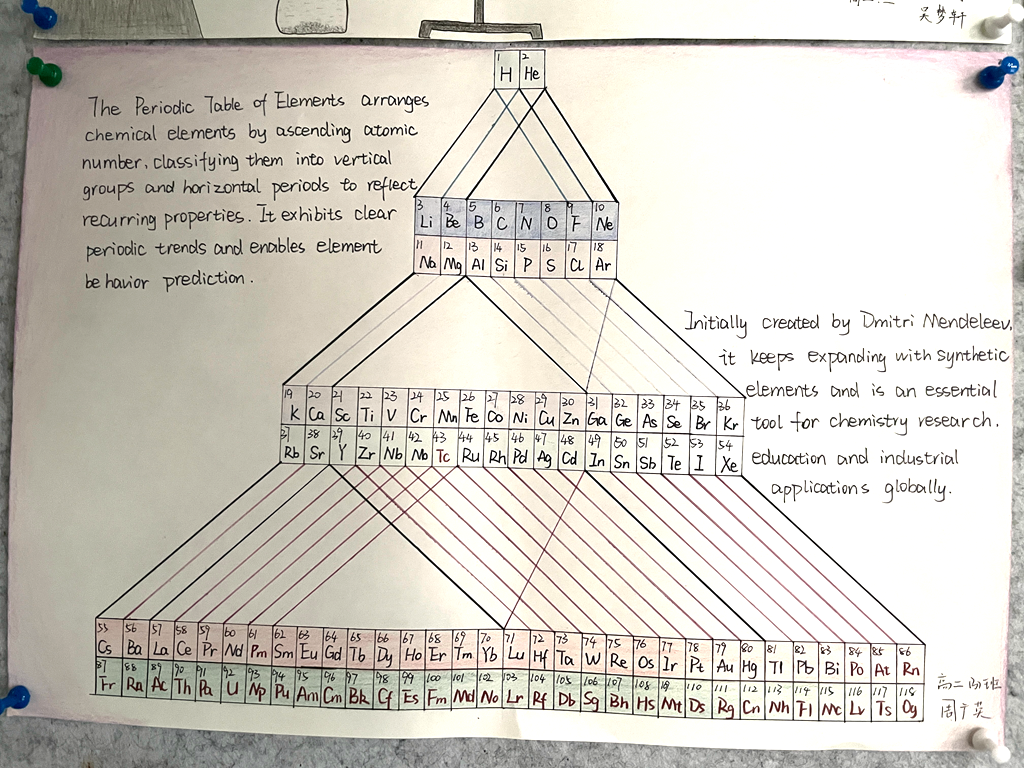 吴梦轩
1 2
H He
The Periodic Table of Elements arranges
chemical elements by ascending atomic
number, classifying them into vertical
groups and horizontal periods to reflect
recurring properties. It exhibits clear
periodic trends and enables element
behavior prediction.
3 4 5 6 7 8 9 10
Li Be B C N O F Ne
11 12 13 14 15 16 17 18
Na Mg Al Si P S Cl Ar
Initially created by Dmitri Mendeleev,
it keeps expanding with synthetic
elements and is an essential
tool for chemistry research.
education and industrial
applications globally.
19 20 21 22 23 24 25 26 27 28 29 30 31 32 33 34 35 36
K Ca Sc Ti V Cr Mn Fe Co Ni Cu Zn Ga Ge As Se Br Kr
37 38 39 40 41 42 43 44 45 46 47 48 49 50 51 52 53 54
Rb Sr Y Zr Nb Mo Tc Ru Rh Pd Ag Cd In Sn Sb Te I Xe
55 56 57 58 59 60 61 62 63 64 65 66 67 68 69 70 71 72 73 74 75 76 77 78 79 80 81 82 83 84 85 86
Cs Ba La Ce Pr Nd Pm Sm Eu Gd Tb Dy Ho Er Tm Yb Lu Hf Ta W Re Os Ir Pt Au Hg Tl Pb Bi Po At Rn
87 88 89 90 91 92 93 94 95 96 97 98 99 100 101 102 103 104 105 106 107 108 109 110 111 112 113 114 115 116 117 118
Fr Ra Ac Th Pa U Np Pu Am Cm Bk Cf Es Fm Md No Lr Rf Db Sg Bh Hs Mt Ds Rg Cn Nh Fl Mc Lv Ts Og
高二
班
周
英